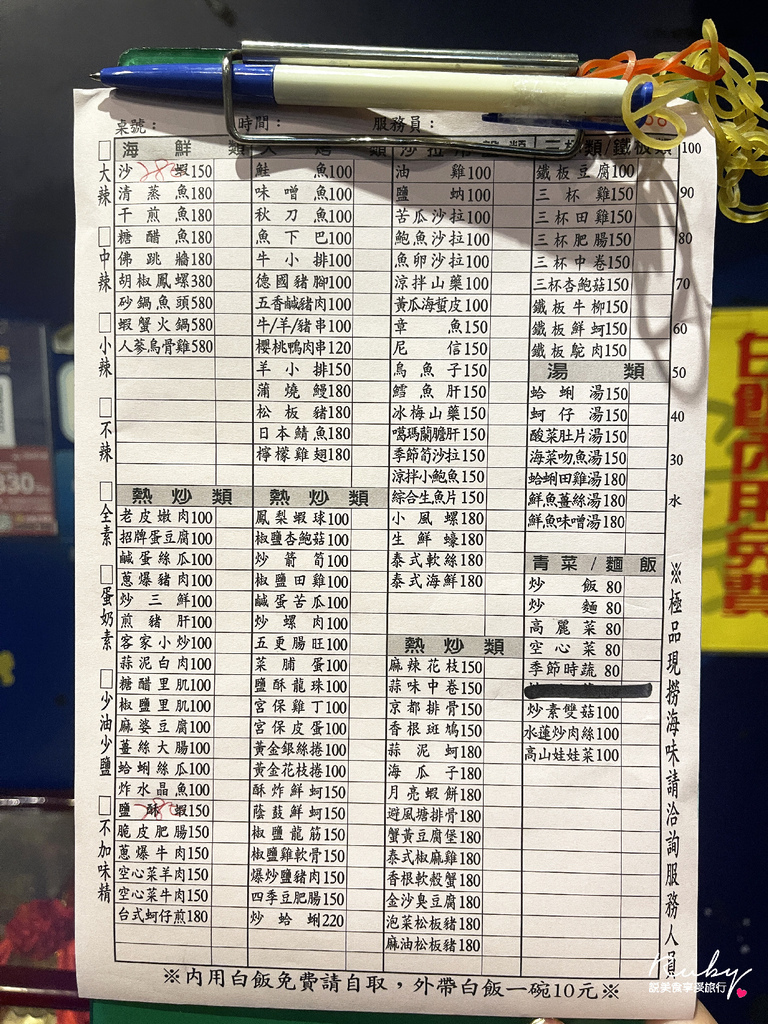 桌號：
時間：
服務員：
海鮮類
沙 蝦150
清蒸魚180
干煎魚180
糖醋魚180
佛跳牆180
胡椒鳳螺380
砂鍋魚頭580
蝦蟹火鍋580
人蔘烏骨雞580
類
鮭魚100
味噌魚100
秋刀魚100
魚下巴100
牛小排100
德國豬腳100
五香鹹豬肉100
牛/羊/豬串100
櫻桃鴨肉串120
羊小排150
蒲燒鰻180
松板豬180
日本鯖魚180
檸檬雞翅180
沙拉
油雞100
鹽蚋100
苦瓜沙拉100
鮑魚沙拉100
魚卵沙拉100
涼拌山藥100
黃瓜海蜇皮100
章魚150
尼信150
烏魚子150
鱈魚肝150
冰梅山藥150
噶瑪蘭膽肝150
季節筍沙拉150
涼拌小鮑魚150
綜合生魚片150
小風螺180
生鮮蠔180
泰式軟絲180
泰式海鮮180
三杯類/鐵板類
鐵板豆腐100
三杯雞150
三杯田雞150
三杯肥腸150
三杯中卷150
三杯杏鮑菇150
鐵板牛柳150
鐵板鮮蚵150
鐵板鴕肉150
湯類
蛤蜊湯150
蚵仔湯150
酸菜肚片湯150
海菜吻魚湯150
蛤蜊田雞湯180
鮮魚薑絲湯180
鮮魚味噌湯180
青菜/麵飯
炒飯 80
炒麵 80
高麗菜 80
空心菜 80
季節時蔬 80
炒素雙菇100
水蓮炒肉絲100
高山娃娃菜100
熱炒類
老皮嫩肉100
招牌蛋豆腐100
鹹蛋絲瓜100
蔥爆豬肉100
炒三鮮100
煎豬肝100
客家小炒100
蒜泥白肉100
糖醋里肌100
椒鹽里肌100
麻婆豆腐100
薑絲大腸100
蛤蜊絲瓜100
炸水晶魚100
鹽酥蝦150
脆皮肥腸150
蔥爆牛肉150
空心菜羊肉150
空心菜牛肉150
台式蚵仔煎180
熱炒類
鳳梨蝦球100
椒鹽杏鮑菇100
炒箭筍100
椒鹽田雞100
鹹蛋苦瓜100
炒螺肉100
五更腸旺100
菜脯蛋100
鹽酥龍珠100
宮保雞丁100
宮保皮蛋100
黃金銀絲捲100
黃金花枝捲100
酥炸鮮蚵150
蔭鼓鮮蚵150
椒鹽龍筋150
椒鹽雞軟骨150
爆炒鹽豬肉150
四季豆肥腸150
炒蛤蜊220
熱炒類
麻辣花枝150
蒜味中卷150
京都排骨150
香根斑鳩150
蒜泥蚵180
海瓜子180
月亮蝦餅180
避風塘排骨180
蟹黃豆腐堡180
泰式椒麻雞180
香根軟殼蟹180
金沙臭豆腐180
泡菜松板豬180
麻油松板豬180
□大辣
□中辣
□小辣
□不辣
□全素
□蛋奶素
□少油少鹽
□不加味精
100
90
80
70
60
50
40
30
水
※極品現撈海味請洽詢服務人員
※內用白飯免費請自取，外帶白飯一碗10元※
白飯內用免費
330
Ruby
說美食享受旅行